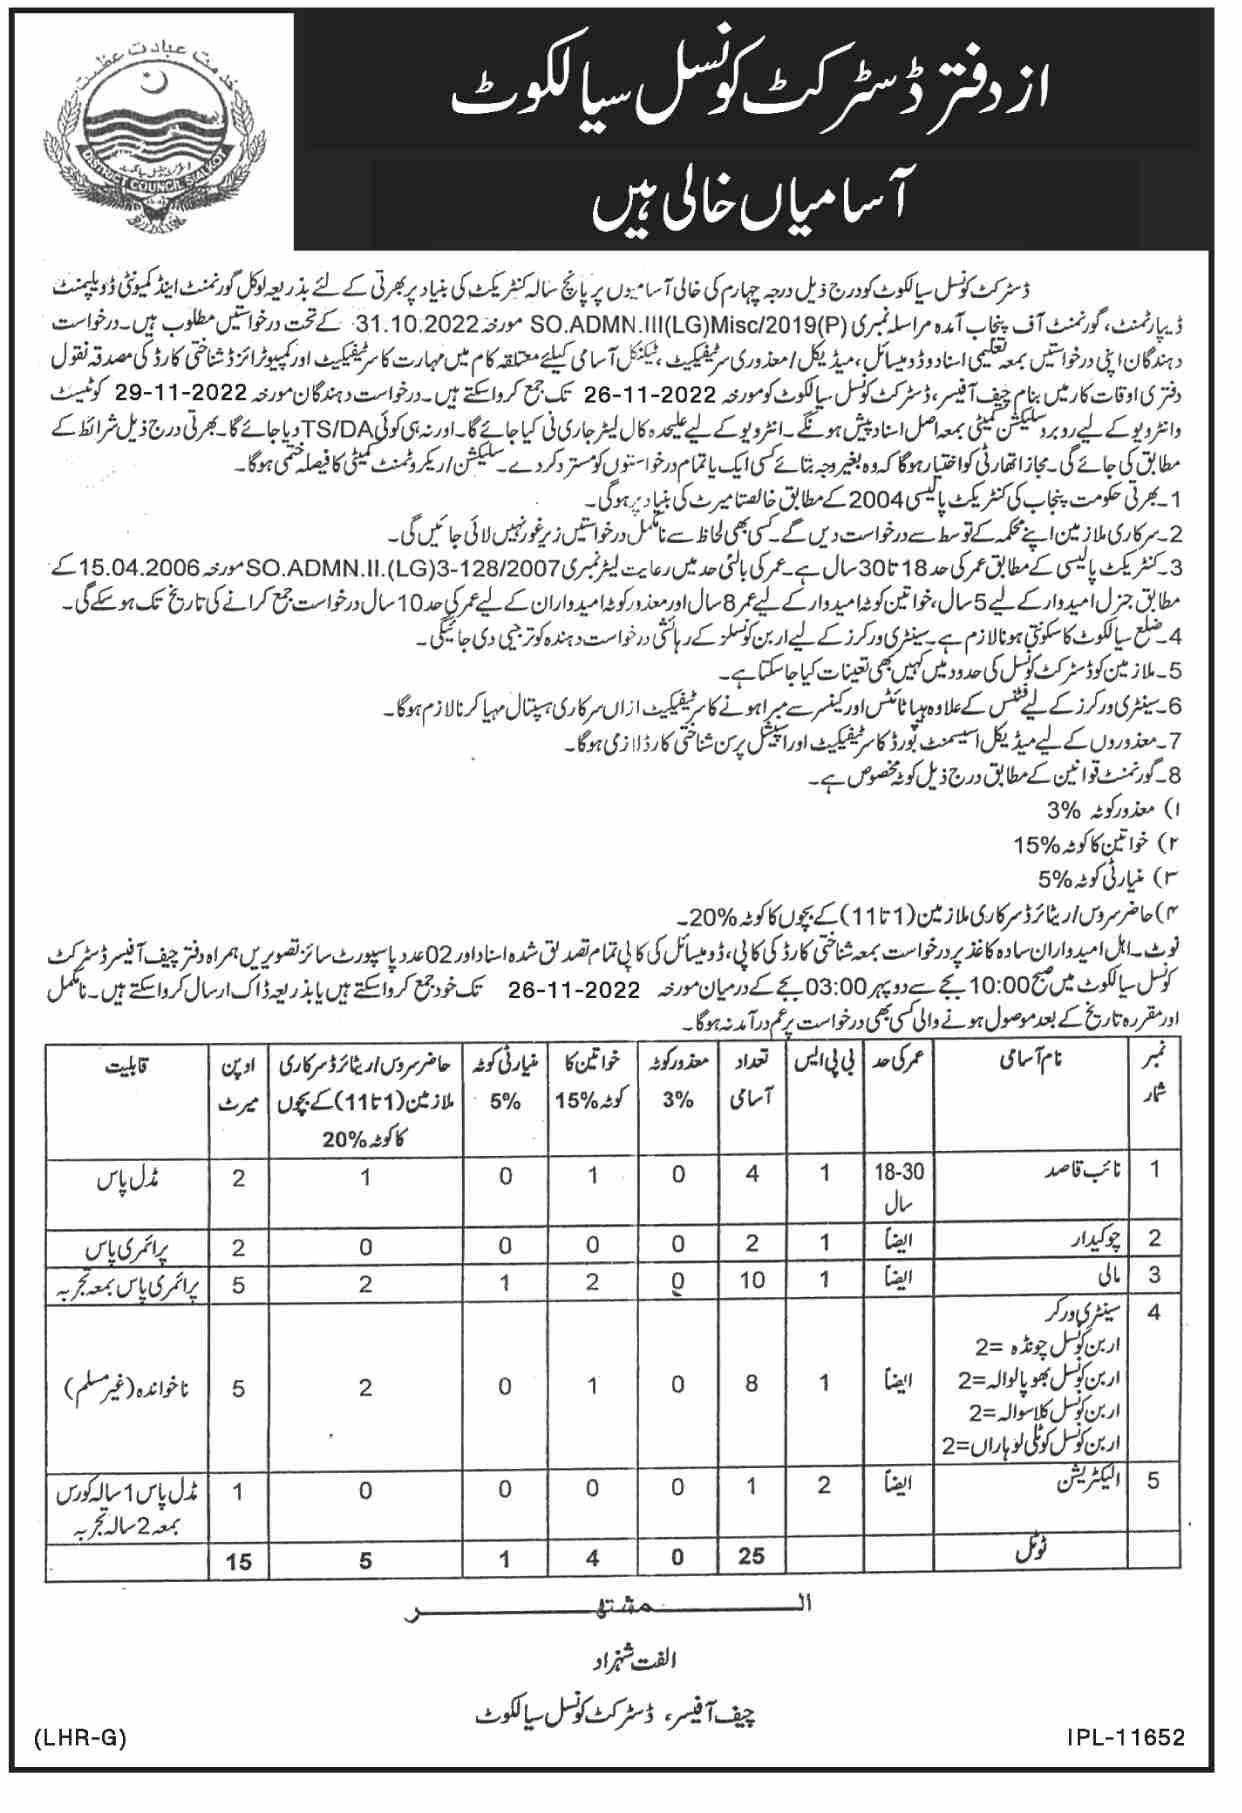 خدمت عبادت عظمت
DISTRICT COUNCIL SIALKOT
از دفتر ڈسٹرکٹ کونسل سیالکوٹ
آسامیاں خالی ہیں
ڈسٹرکٹ کونسل سیالکوٹ کو درج ذیل درجہ چہارم کی خالی آسامیوں پر پانچ سالہ کنٹریکٹ کی بنیاد پر بھرتی کے لئے بذریعہ لوکل گورنمنٹ اینڈ کمیونٹی ڈویلپمنٹ
ڈیپارٹمنٹ، گورنمنٹ آف پنجاب آمدہ مراسلہ نمبری SO.ADMN.III(LG)Misc/2019(P) مورخہ 31.10.2022 کے تحت درخواستیں مطلوب ہیں۔ درخواست
دہندگان اپنی درخواستیں بمعہ تعلیمی اسناد و ڈومیسائل، میڈیکل/معذوری سرٹیفکیٹ، ٹیکنکل آسامی کیلئے متعلقہ کام میں مہارت کا سرٹیفکیٹ اور کمپیوٹرائزڈ شناختی کارڈ کی مصدقہ نقول
دفتری اوقات کار میں بنام چیف آفیسر، ڈسٹرکٹ کونسل سیالکوٹ کو مورخہ 26-11-2022 تک جمع کروا سکتے ہیں۔ درخواست دہندگان مورخہ 29-11-2022 کو ٹیسٹ
و انٹرویو کے لیے روبرو سلیکشن کمیٹی بمعہ اصل اسناد پیش ہونگے۔ انٹرویو کے لیے علیحدہ کال لیٹر جاری نی کیا جائے گا۔ اور نہ ہی کوئی TS/DA دیا جائے گا۔ بھرتی درج ذیل شرائط کے
مطابق کی جائے گی۔ مجاز اتھارٹی کو اختیار ہوگا کہ وہ بغیر وجہ بتائے کسی ایک یا تمام درخواستوں کو مسترد کر دے۔ سلیکشن/ریکروٹمنٹ کمیٹی کا فیصلہ حتمی ہوگا۔
1۔ بھرتی حکومت پنجاب کی کنٹریکٹ پالیسی 2004 کے مطابق خالصتا میرٹ کی بنیاد پر ہوگی۔
2۔ سرکاری ملازمین اپنے محکمہ کے توسط سے درخواست دیں گے۔ کسی بھی لحاظ سے نامکمل درخواستیں زیر غور نہیں لائی جائیں گی۔
3۔ کنٹریکٹ پالیسی کے مطابق عمر کی حد 18 تا 30 سال ہے۔ عمر کی بالائی حد میں رعایت لیٹر نمبری SO.ADMN.II.(LG)3-128/2007 مورخہ 15.04.2006 کے
مطابق جنرل امیدوار کے لیے 5 سال، خواتین کوٹہ امیدوار کے لیے عمر 8 سال اور معذور کوٹہ امیدواران کے لیے عمر کی حد 10 سال درخواست جمع کرانے کی تاریخ تک ہو سکے گی۔
4۔ ضلع سیالکوٹ کا سکونتی ہونا لازم ہے۔ سینٹری ورکرز کے لیے اربن کونسلز کے رہائشی درخواست دہندہ کو ترجیی دی جائیگی۔
5۔ ملازمین کو ڈسٹرکٹ کونسل کی حدود میں کہیں بھی تعینات کیا جا سکتا ہے۔
6۔ سینٹری ورکرز کے لیے فٹنس کے علاوہ ہیپاٹائٹس اور کینسر سے مبرا ہونے کا سرٹیفکیٹ ازاں سرکاری ہسپتال مہیا کرنا لازم ہوگا۔
7۔ معذوروں کے لیے میڈیکل اسیسمنٹ بورڈ کا سرٹیفکیٹ اور اسپیشل پرسن شناختی کارڈ لازمی ہوگا۔
8۔ گورنمنٹ قوانین کے مطابق درج ذیل کوٹہ مخصوص ہے۔
۱) معذور کوٹہ 3%
۲) خواتین کا کوٹہ 15%
۳) منیارٹی کوٹہ 5%
۴) حاضر سروس/ریٹائرڈ سرکاری ملازمین (1 تا 11) کے بچوں کا کوٹہ 20%۔
نوٹ۔ اہل امیدواران سادہ کاغذ پر درخواست بمعہ شناختی کارڈ کی کاپی، ڈومیسائل کی کاپی تمام تصدیق شدہ اسناد اور 02 عدد پاسپورٹ سائز تصویریں ہمراہ دفتر چیف آفیسر ڈسٹرکٹ
کونسل سیالکوٹ میں صبح 10:00 بجے سے دوپہر 03:00 بجے کے درمیان مورخہ 26-11-2022 تک خود جمع کروا سکتے ہیں یا بذریعہ ڈاک ارسال کروا سکتے ہیں۔ نامکمل
اور مقررہ تاریخ کے بعد موصول ہونے والی کسی بھی درخواست پر عمل درآمد نہ ہوگا۔
نمبر شمار نام آسامی عمر کی حد بی پی ایس تعداد آسامی معذور کوٹہ 3% خواتین کا کوٹہ 15% منیارٹی کوٹہ 5% حاضر سروس/ریٹائرڈ سرکاری ملازمین (1 تا 11) کے بچوں کا کوٹہ 20% اوپن میرٹ قابلیت
1 نائب قاصد 18-30 سال 1 4 0 1 0 1 2 مڈل پاس
2 چوکیدار ایضاً 1 2 0 0 0 0 2 پرائمری پاس
3 مالی ایضاً 1 10 0 2 1 2 5 پرائمری پاس بمعہ تجربہ
4 سینٹری ورکر
اربن کونسل چونڈہ =2
اربن کونسل بھوپالوالہ =2
اربن کونسل کلاسوالہ =2
اربن کونسل کوٹلی لوہاراں =2
ایضاً 1 8 0 1 0 2 5 ناخواندہ (غیر مسلم)
5 الیکٹریشن ایضاً 2 1 0 0 0 0 1 مڈل پاس 1 سالہ کورس بمعہ 2 سالہ تجربہ
ٹوٹل 25 0 4 1 5 15
المشتہر
الفت شہزاد
چیف آفیسر، ڈسٹرکٹ کونسل سیالکوٹ
(LHR-G)
IPL-11652